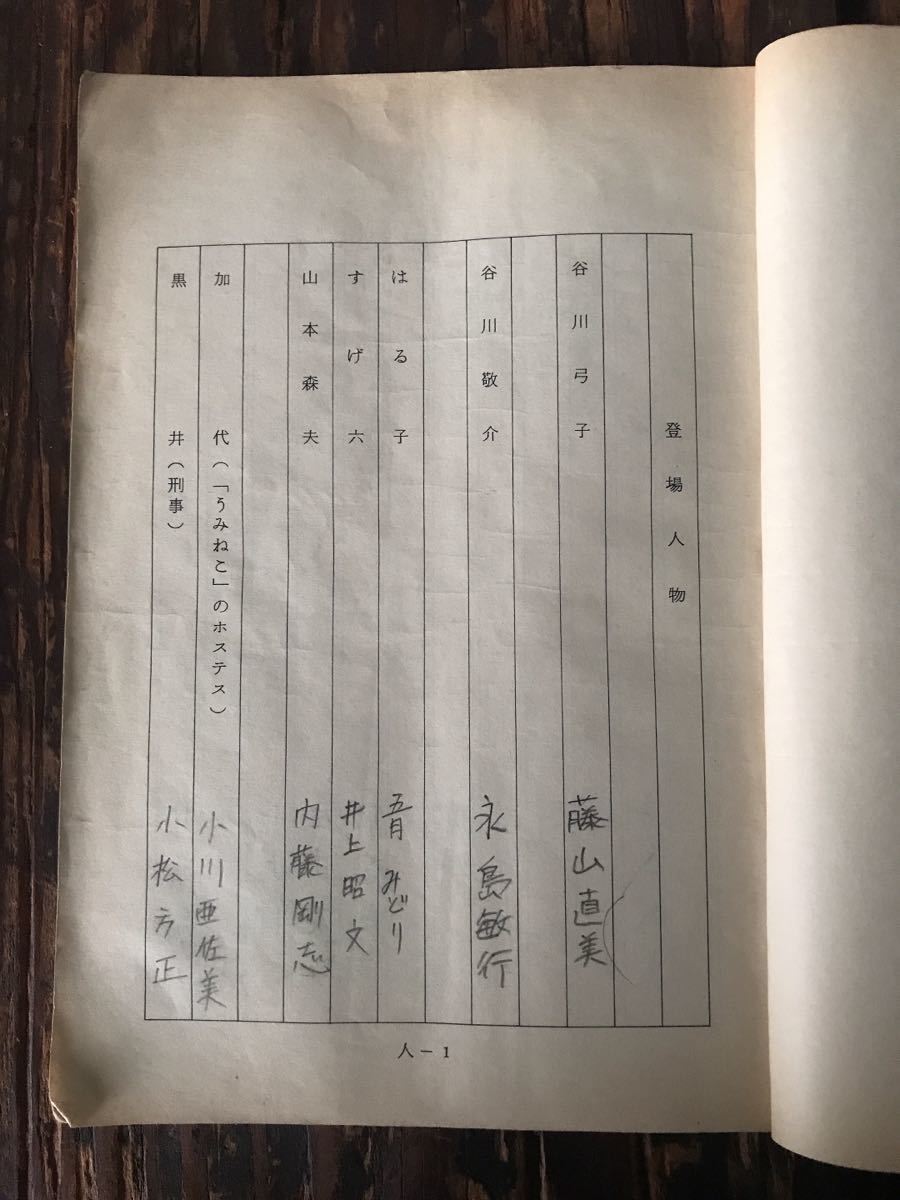 登場人物
谷川弓子 藤山直美
谷川敬介 永島敏行
はる子 五月みどり
すげ六 井上昭文
山本森夫 内藤剛志
加代(「うみねこ」のホステス) 小川亜佐美
黒井(刑事) 小松方正
人-1